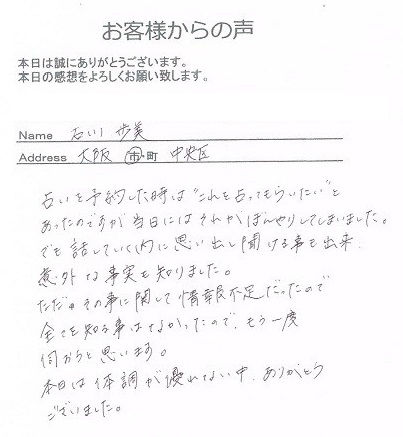 お客様からの声
本日は誠にありがとうございます。
本日の感想をよろしくお願い致します。
Name 石川 歩美
Address 大阪 市・町 中央区
占いを予約した時は"これを占ってもらいたい"と
あったのですが当日にはそれがぼんやりしてしまいました。
でも話していく内に思い出し聞ける事も出来、
意外な事実も知りました。
ただ、その事に関して情報不足だったので
全てを知る事はなかったので、もう一度
伺おうと思います。
本日は体調が優れない中、ありがとう
ございました。